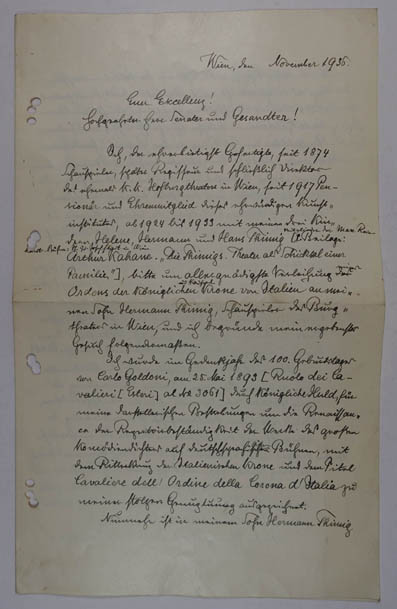 Wien, den November 1935.
Euer Excellenz!
Hochgeehrter Herr Senator und Gesandter!
Ich, der ehrerbietigst Gefertigte, seit 1874
Schauspieler, später Regisseur und schließlich Direktor
des ehemals k. k. Hofburgtheaters in Wien, seit 1917 Pen-
sionär und Ehrenmitglied dieses ehrwürdigen Kunst-
institutes, ab 1924 bis 1933 mit meinen drei Kin-
dern, Helene, Hermann und Hans Thimig [Beilage:
Arthur Kahane. „Die Thimigs. Theater als Schicksal einer
Familie."], bitte um allergnädigste Verleihung des
Ordens der Königlichen Krone von Italien an mei-
nen Sohn Hermann Thimig, Schauspieler des Burg-
theaters in Wien, und ich begründe mein ergebenstes
Gesuch folgendermaßen.
Ich wurde im Gedenkjahr des 100. Geburtstages
von Carlo Goldoni, am 25. Mai 1893 [Ruolo dei Ca-
valieri [Esteri] al No 3061] durch Königliche Huld, für
meine darstellerischen Bestrebungen um die Renaissan-
ce der Repertoirbeständigkeit der Werke des großen
Komödiendichters auf Bühnen, mit
dem Ritterkreuz der Italienischen Krone und dem Titel
Cavaliere dell' Ordine della Corona d'Italia zu
meiner stolzen Genugtuung ausgezeichnet.
Nunmehr ist in meinem Sohn Hermann Thimig